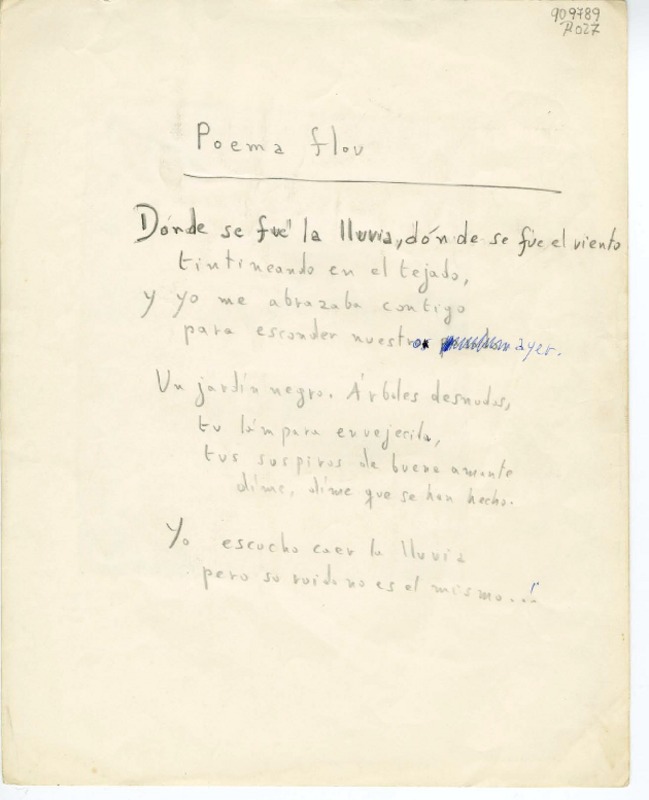 909789
R027
Poema flou
Dónde se fué la lluvia, dónde se fue el viento
tintineando en el tejado,
y yo me abrazaba contigo
para esconder nuestro ayer.
Un jardín negro. Árboles desnudos,
tu lámpara envejecida,
tus suspiros de buena amante
díme, díme que se han hecho.
Yo escucho caer la lluvia
pero su ruido no es el mismo...!